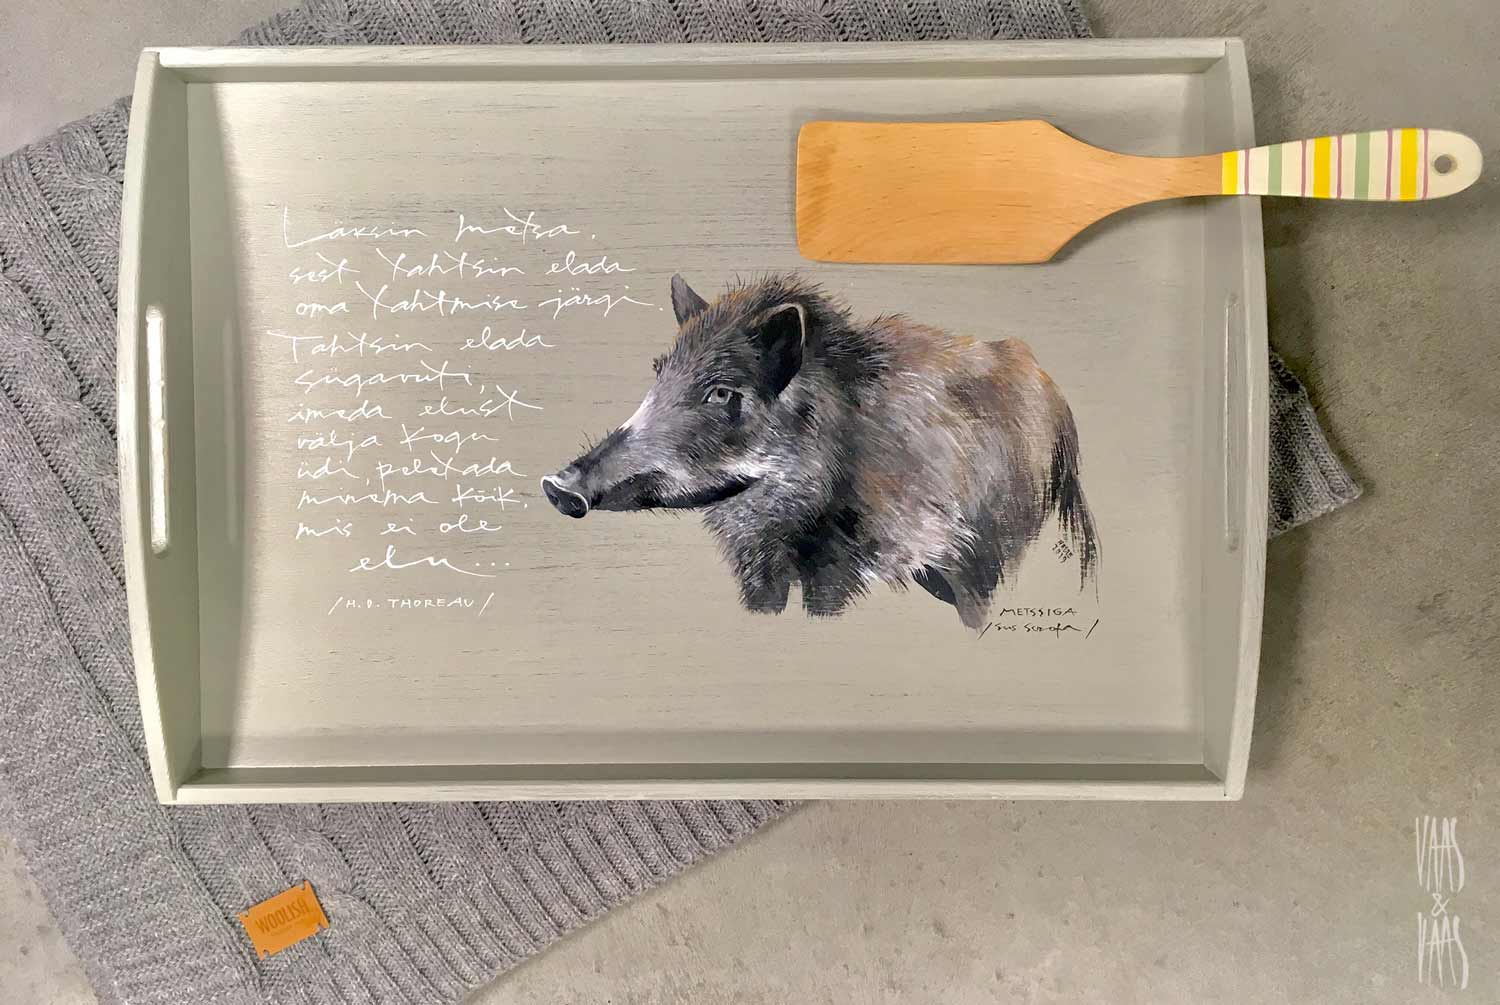 Läksin metsa,
sest tahtsin elada
oma tahtmise järgi.
Tahtsin elada
sügavuti,
imeda elust
välja kogu
üdi, peletada
minema kõik,
mis ei ole
elu...
/H. D. THOREAU/
2019
METSSIGA
/Sus scrofa/
WOOLISH
VAAS
&
VAAS